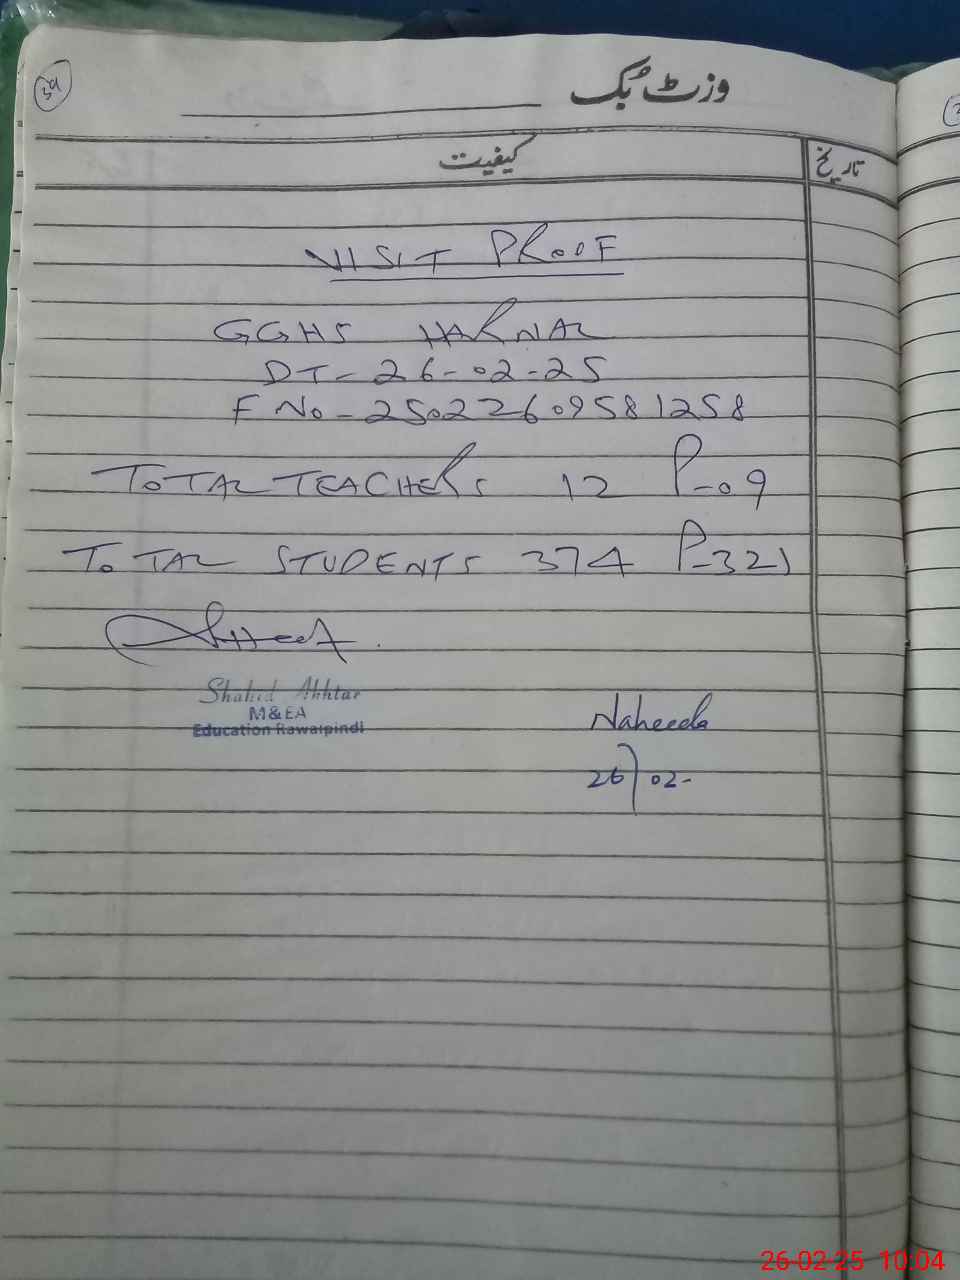 39
وزٹ بُک
کیفیت
تاریخ
VISIT PROOF
GGHS HARNAL
DT - 26-02-25
F No - 25022609581258
TOTAL TEACHERS 12 P-09
TOTAL STUDENTS 374 P-321
Shahid Akhtar
M&EA
Education Rawalpindi
Naheeda
26/02-
26-02-25 10:04